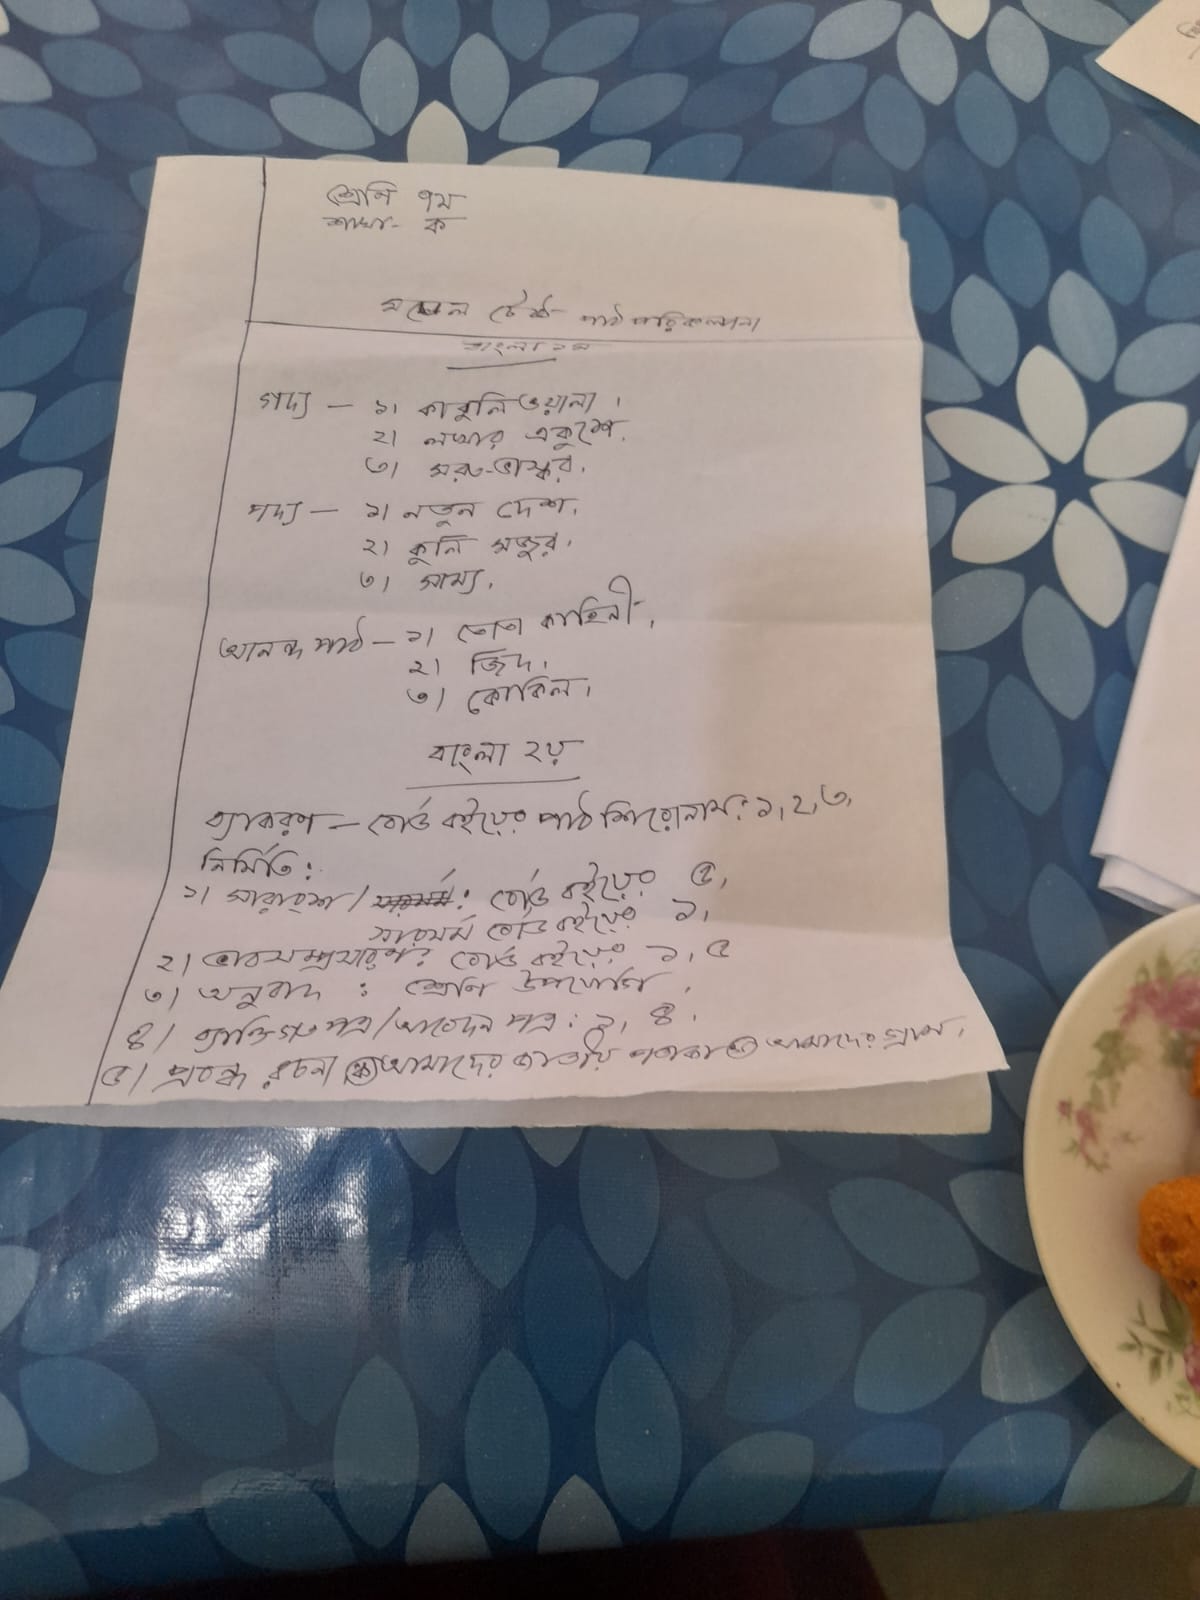 শ্রেণি ৭ম
শাখা- ক
মডেল টেস্ট পাঠ পরিকল্পনা
বাংলা ১ম
গদ্য – ১। কাবুলিওয়ালা।
২। লখার একুশে।
৩। মরু-ভাস্কর।
পদ্য – ১। নতুন দেশ।
২। কুলি মজুর।
৩। সাম্য।
আনন্দ পাঠ – ১। তোতা কাহিনী।
২। জিদ।
৩। কোকিল।
বাংলা ২য়
ব্যাকরণ – বোর্ড বইয়ের পাঠ শিরোনাম: ১, ২, ৩,
নির্মিতি:
১। সারাংশ / : বোর্ড বইয়ের ৫,
সারমর্ম বোর্ড বইয়ের ১,
২। ভাবসম্প্রসারণ: বোর্ড বইয়ের ১, ৫
৩। অনুবাদ : শ্রেণি উপযোগি।
৪। ব্যাক্তিগত পত্র/আবেদন পত্র: ২, ৪,
৫। প্রবন্ধ রচনা আমাদের জাতীয় পতাকা আমাদের গ্রাম।